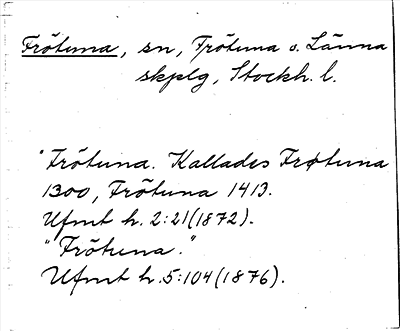 Frötuna, sn, Frötuna o. Länna
skplg, Stockh. l.
"Frötuna. Kallades Frøtuna
1300, Frötuna 1413.
Ufmt h. 2:21(1872).
"Frötuna."
Ufmt h. 5:104(1876).